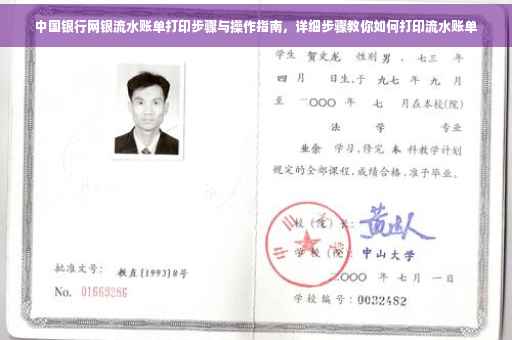 中国银行网银流水账单打印步骤与操作指南，详细步骤教你如何打印流水账单
学生 贺文龙 性别 男 . 七三 年
四 月 日生,于 九七 年 九 月
至 二〇〇〇 年 七 月在本校(院)
法 学 专业
业余 学习,修完 本 科教学计划
规定的全部课程,成绩合格,准予毕业。
校 (院) 长:
学 校 (院): 中山大学
批准文号: 教直(1993)8号
二〇〇〇 年 七 月 一日
No. 01669286
学校编号: 0032482